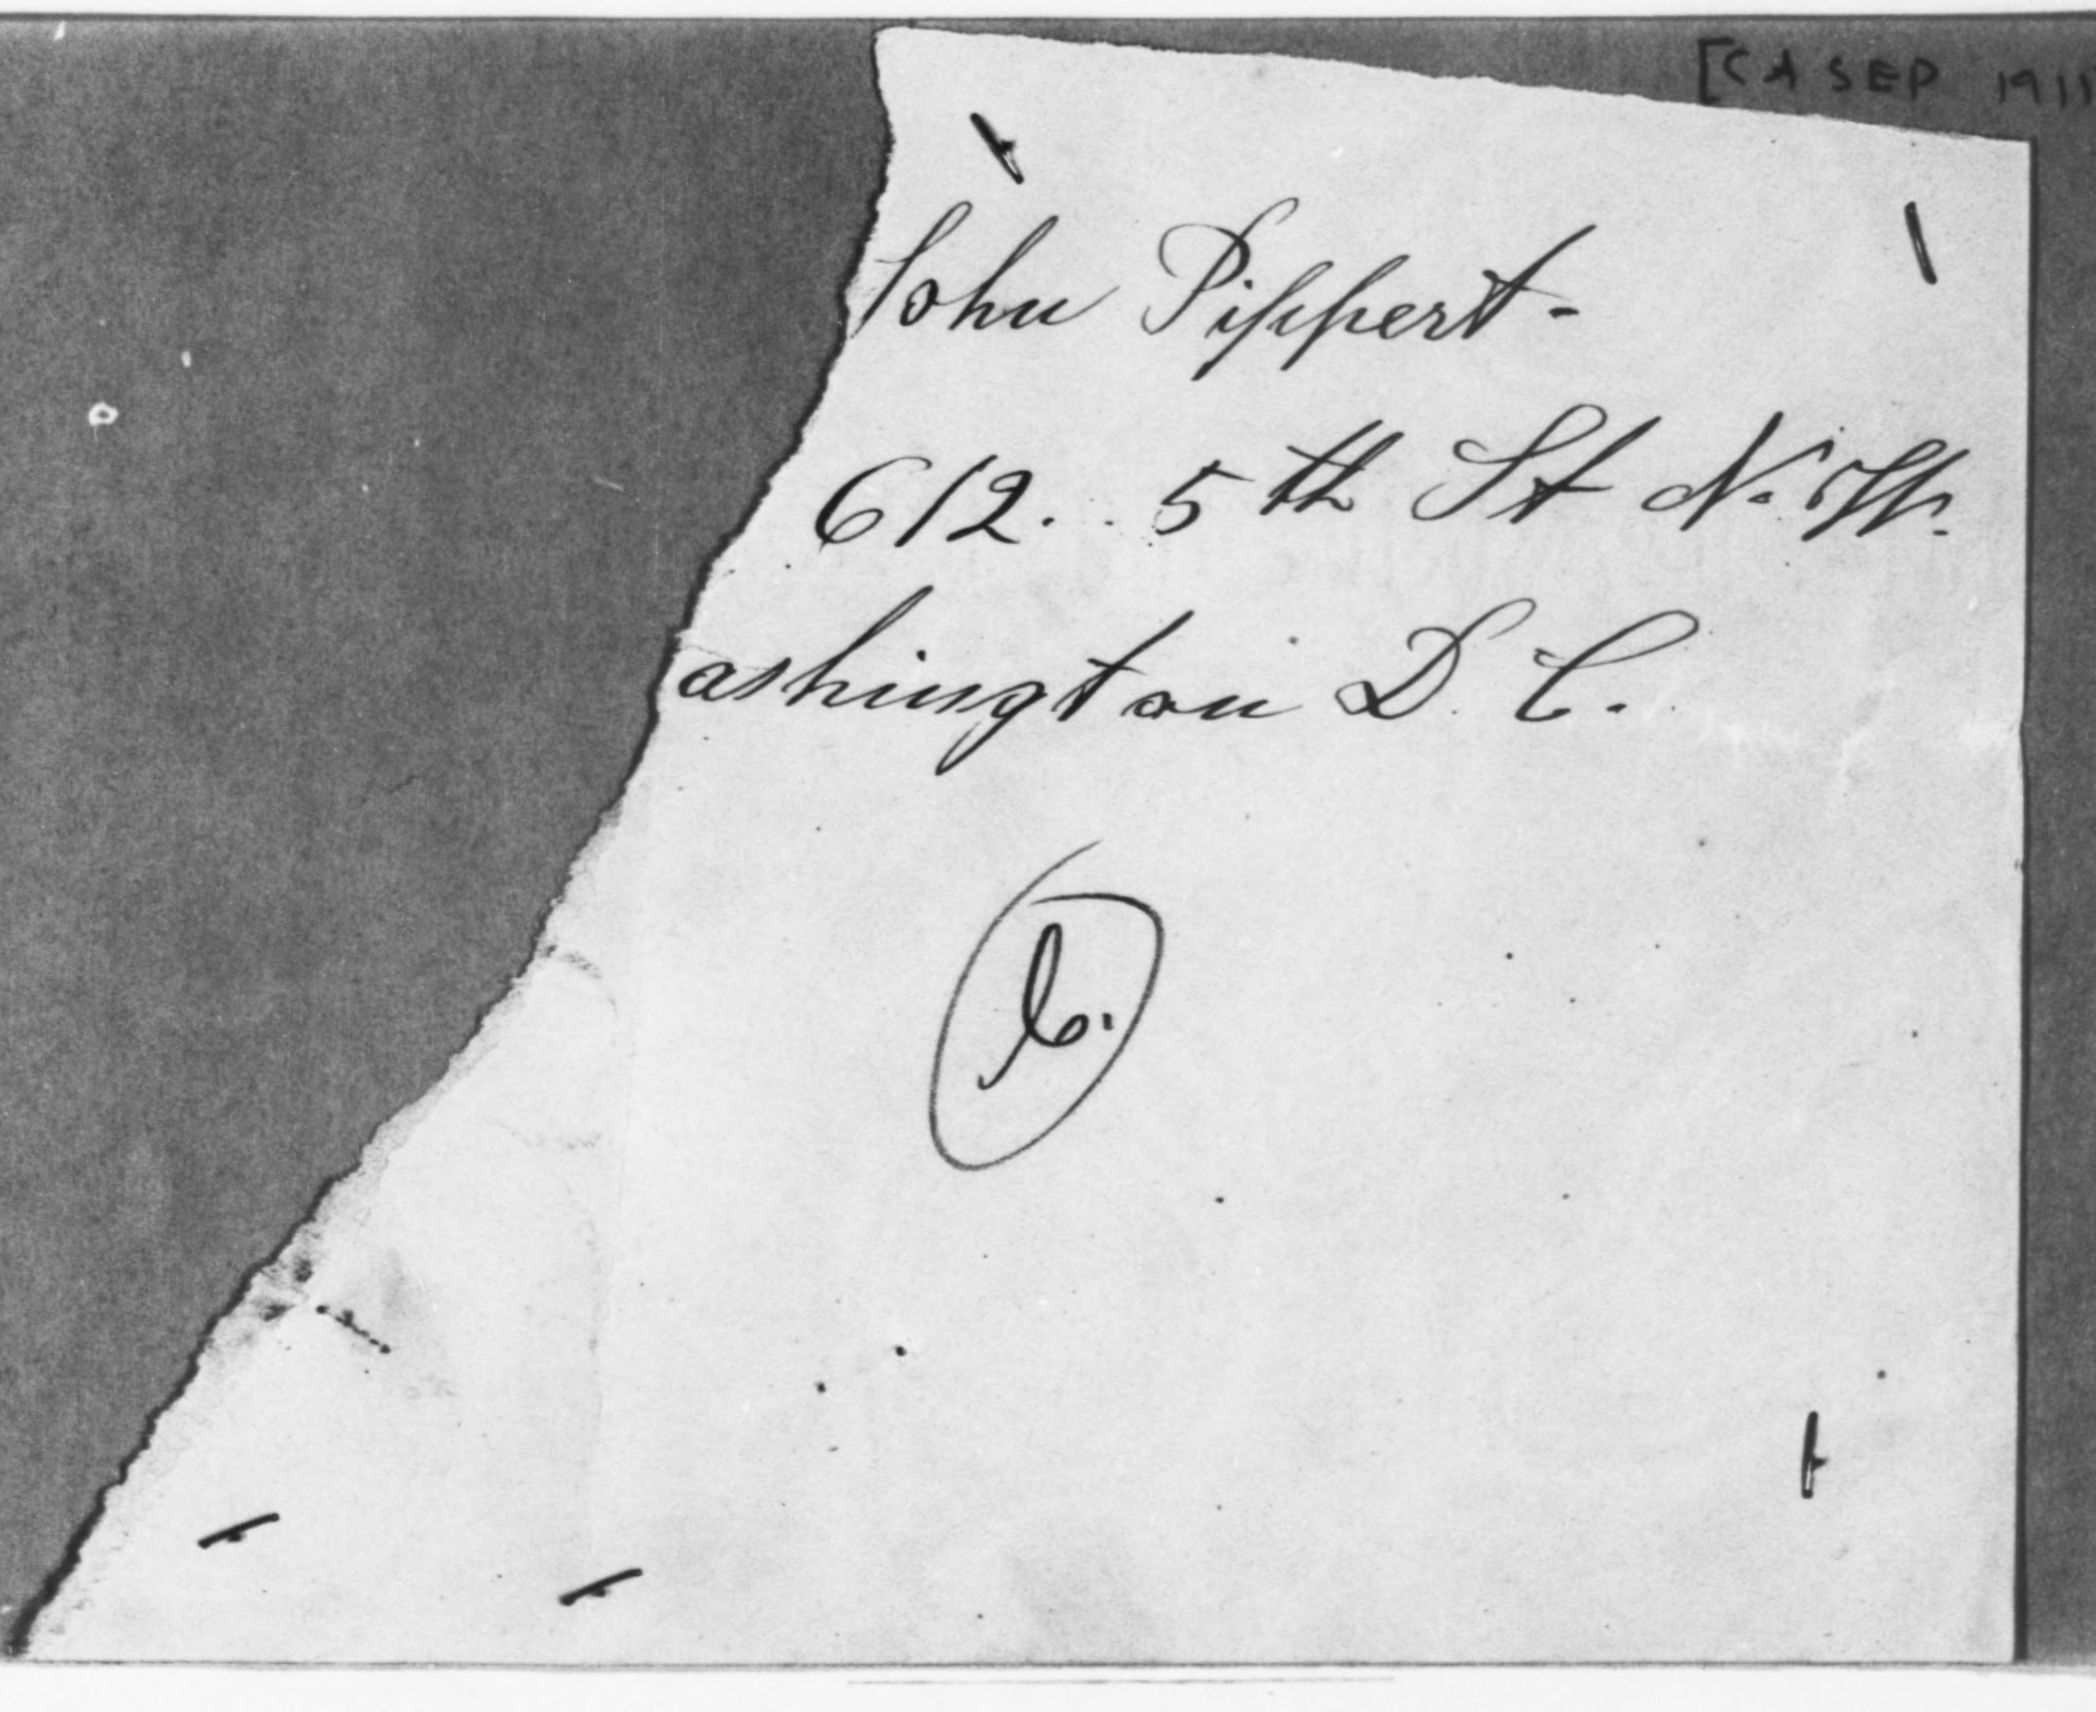 [CA SEP 1911
John Pippert-
612. 5th St N.W.
ashington D.C.
b.